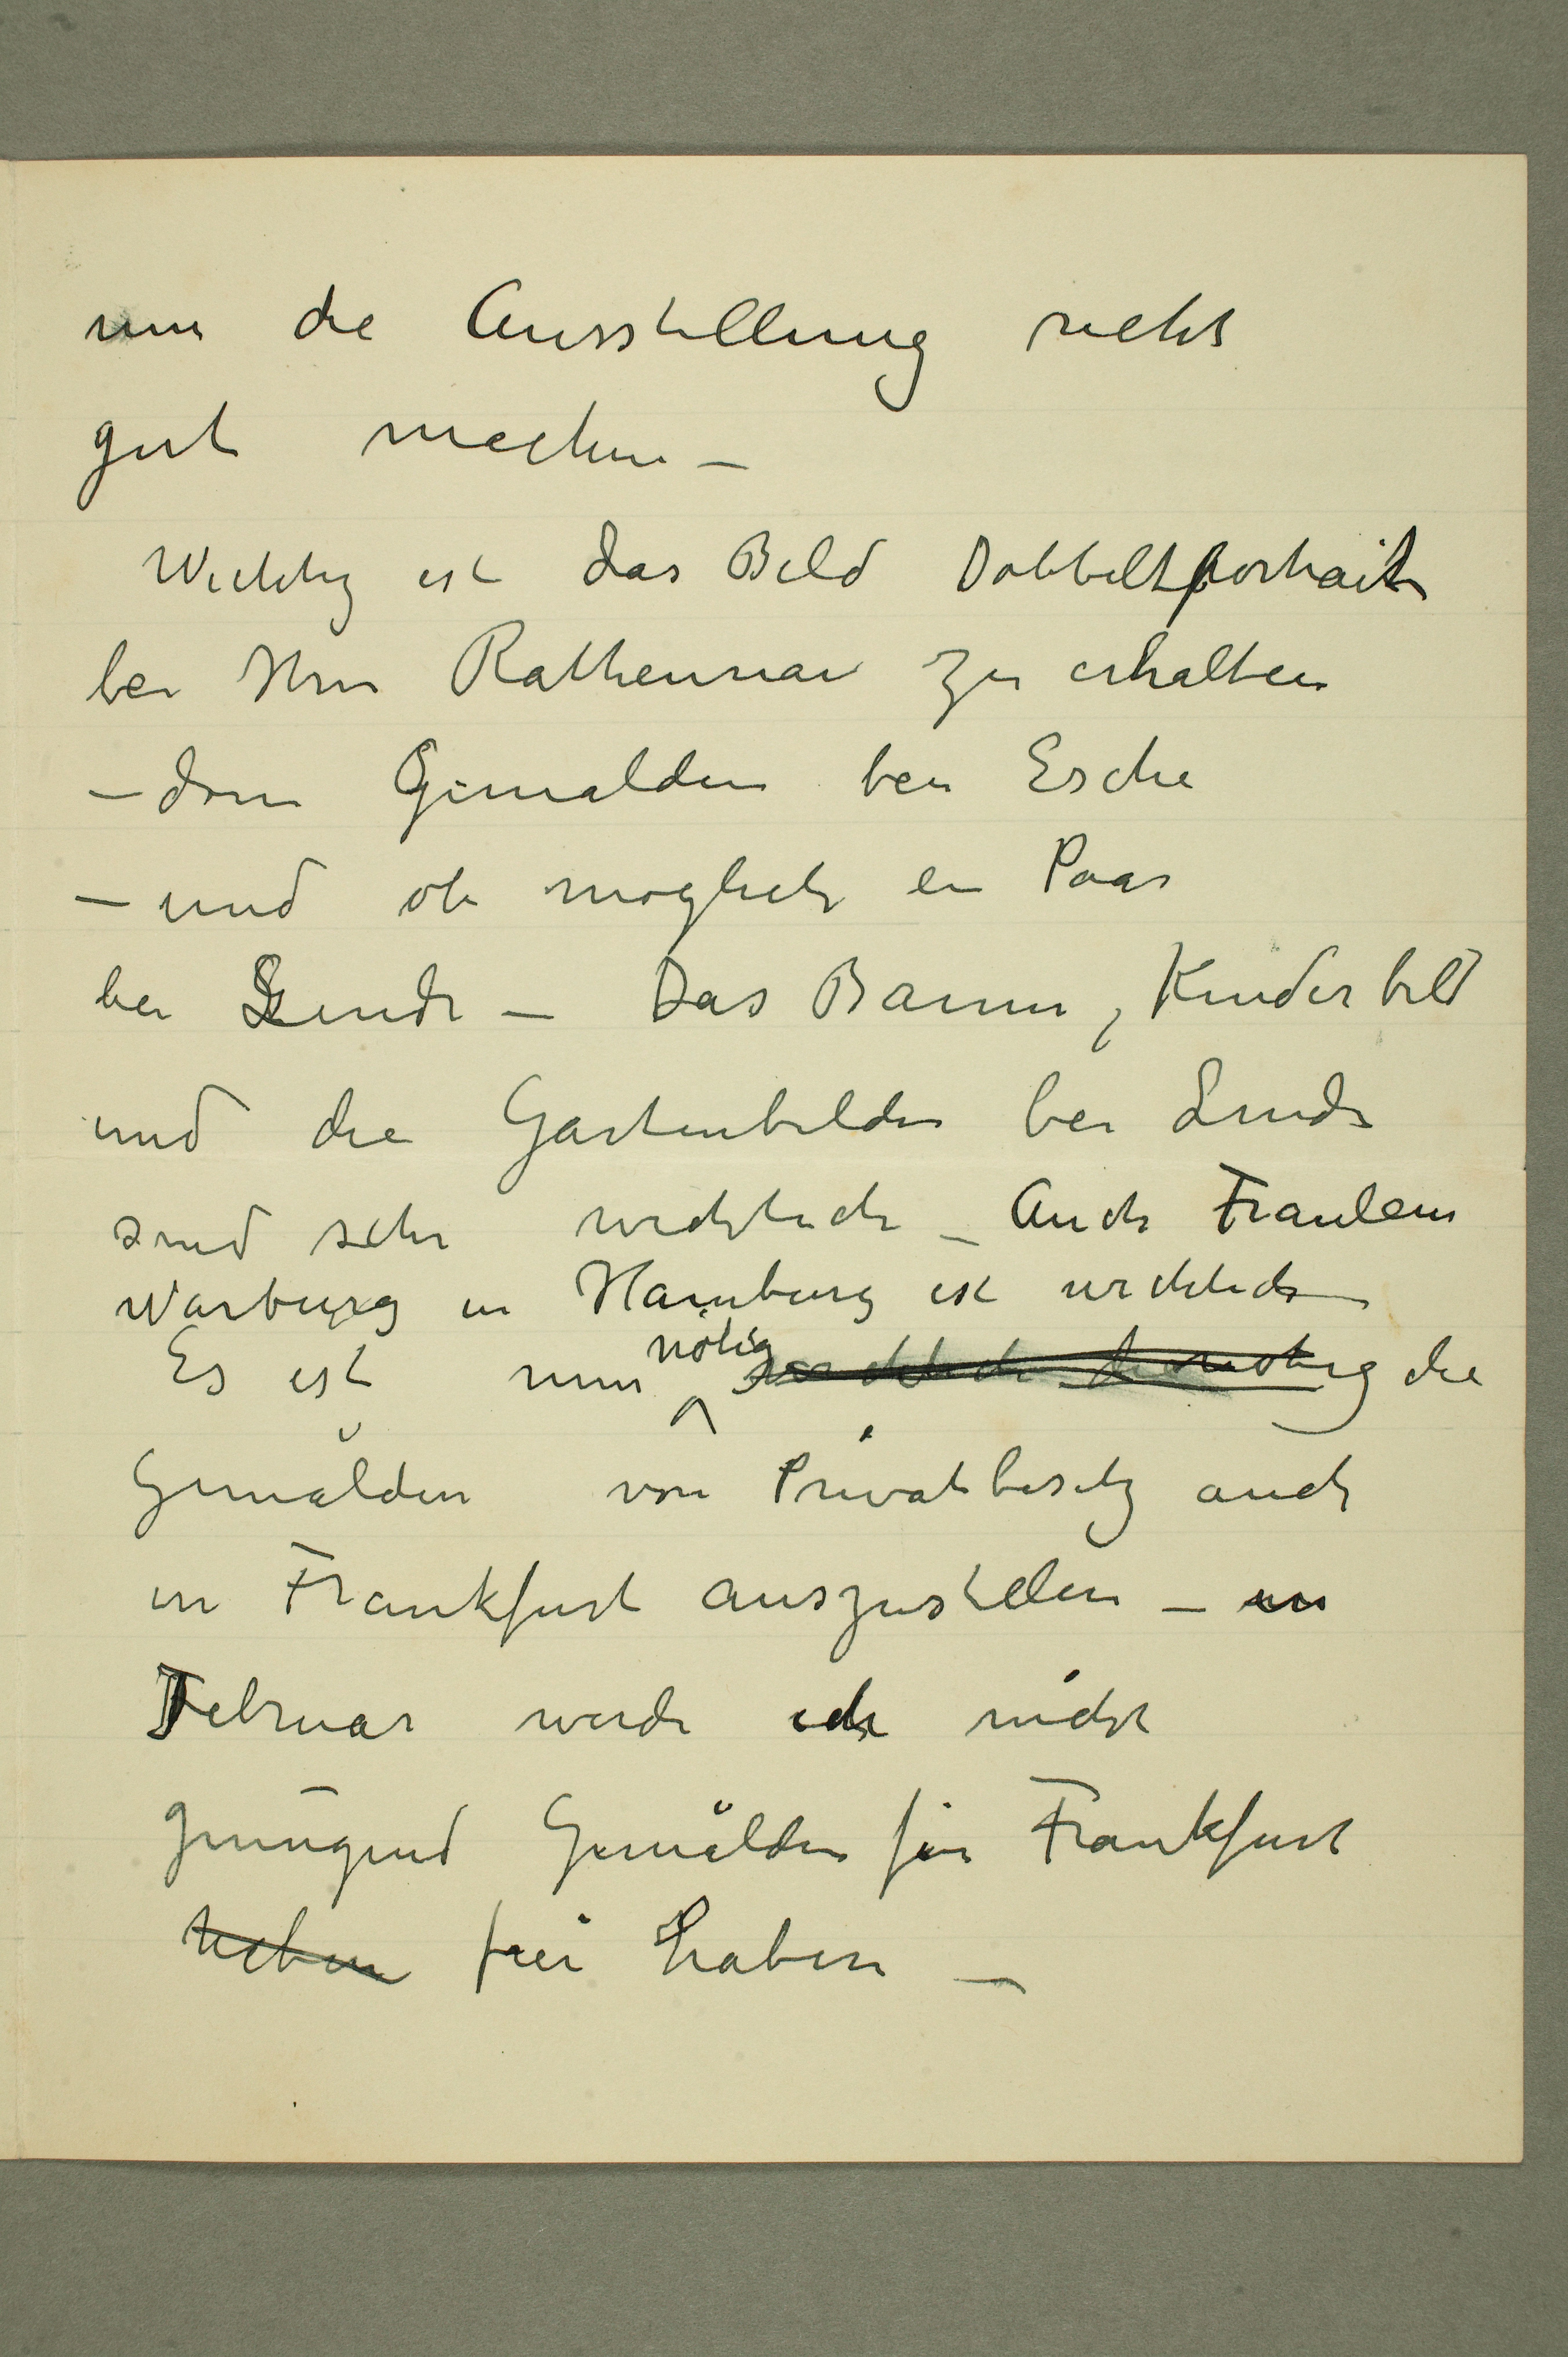 um die Ausstellung recht
gut machen –
Wichtig ist das Bild Dobbeltportrait
bei Hrn Rathenau zu erhalten
– dem Gemälden bei Esche
– und ob möglich ein Paar
bei Linde – Das Baum, Kinderbild
und die Gartenbilder bei Linde
sind sehr wichtich – Auch Fraulein
Warburg in Hamburg ist wichtich
Es ist nun nötig die
Gemälden von Privatbesitz auch
in Frankfurt auszustellen – in
Februar werde ich nicht
genügend Gemälden für Frankfurt
haben frei haben –